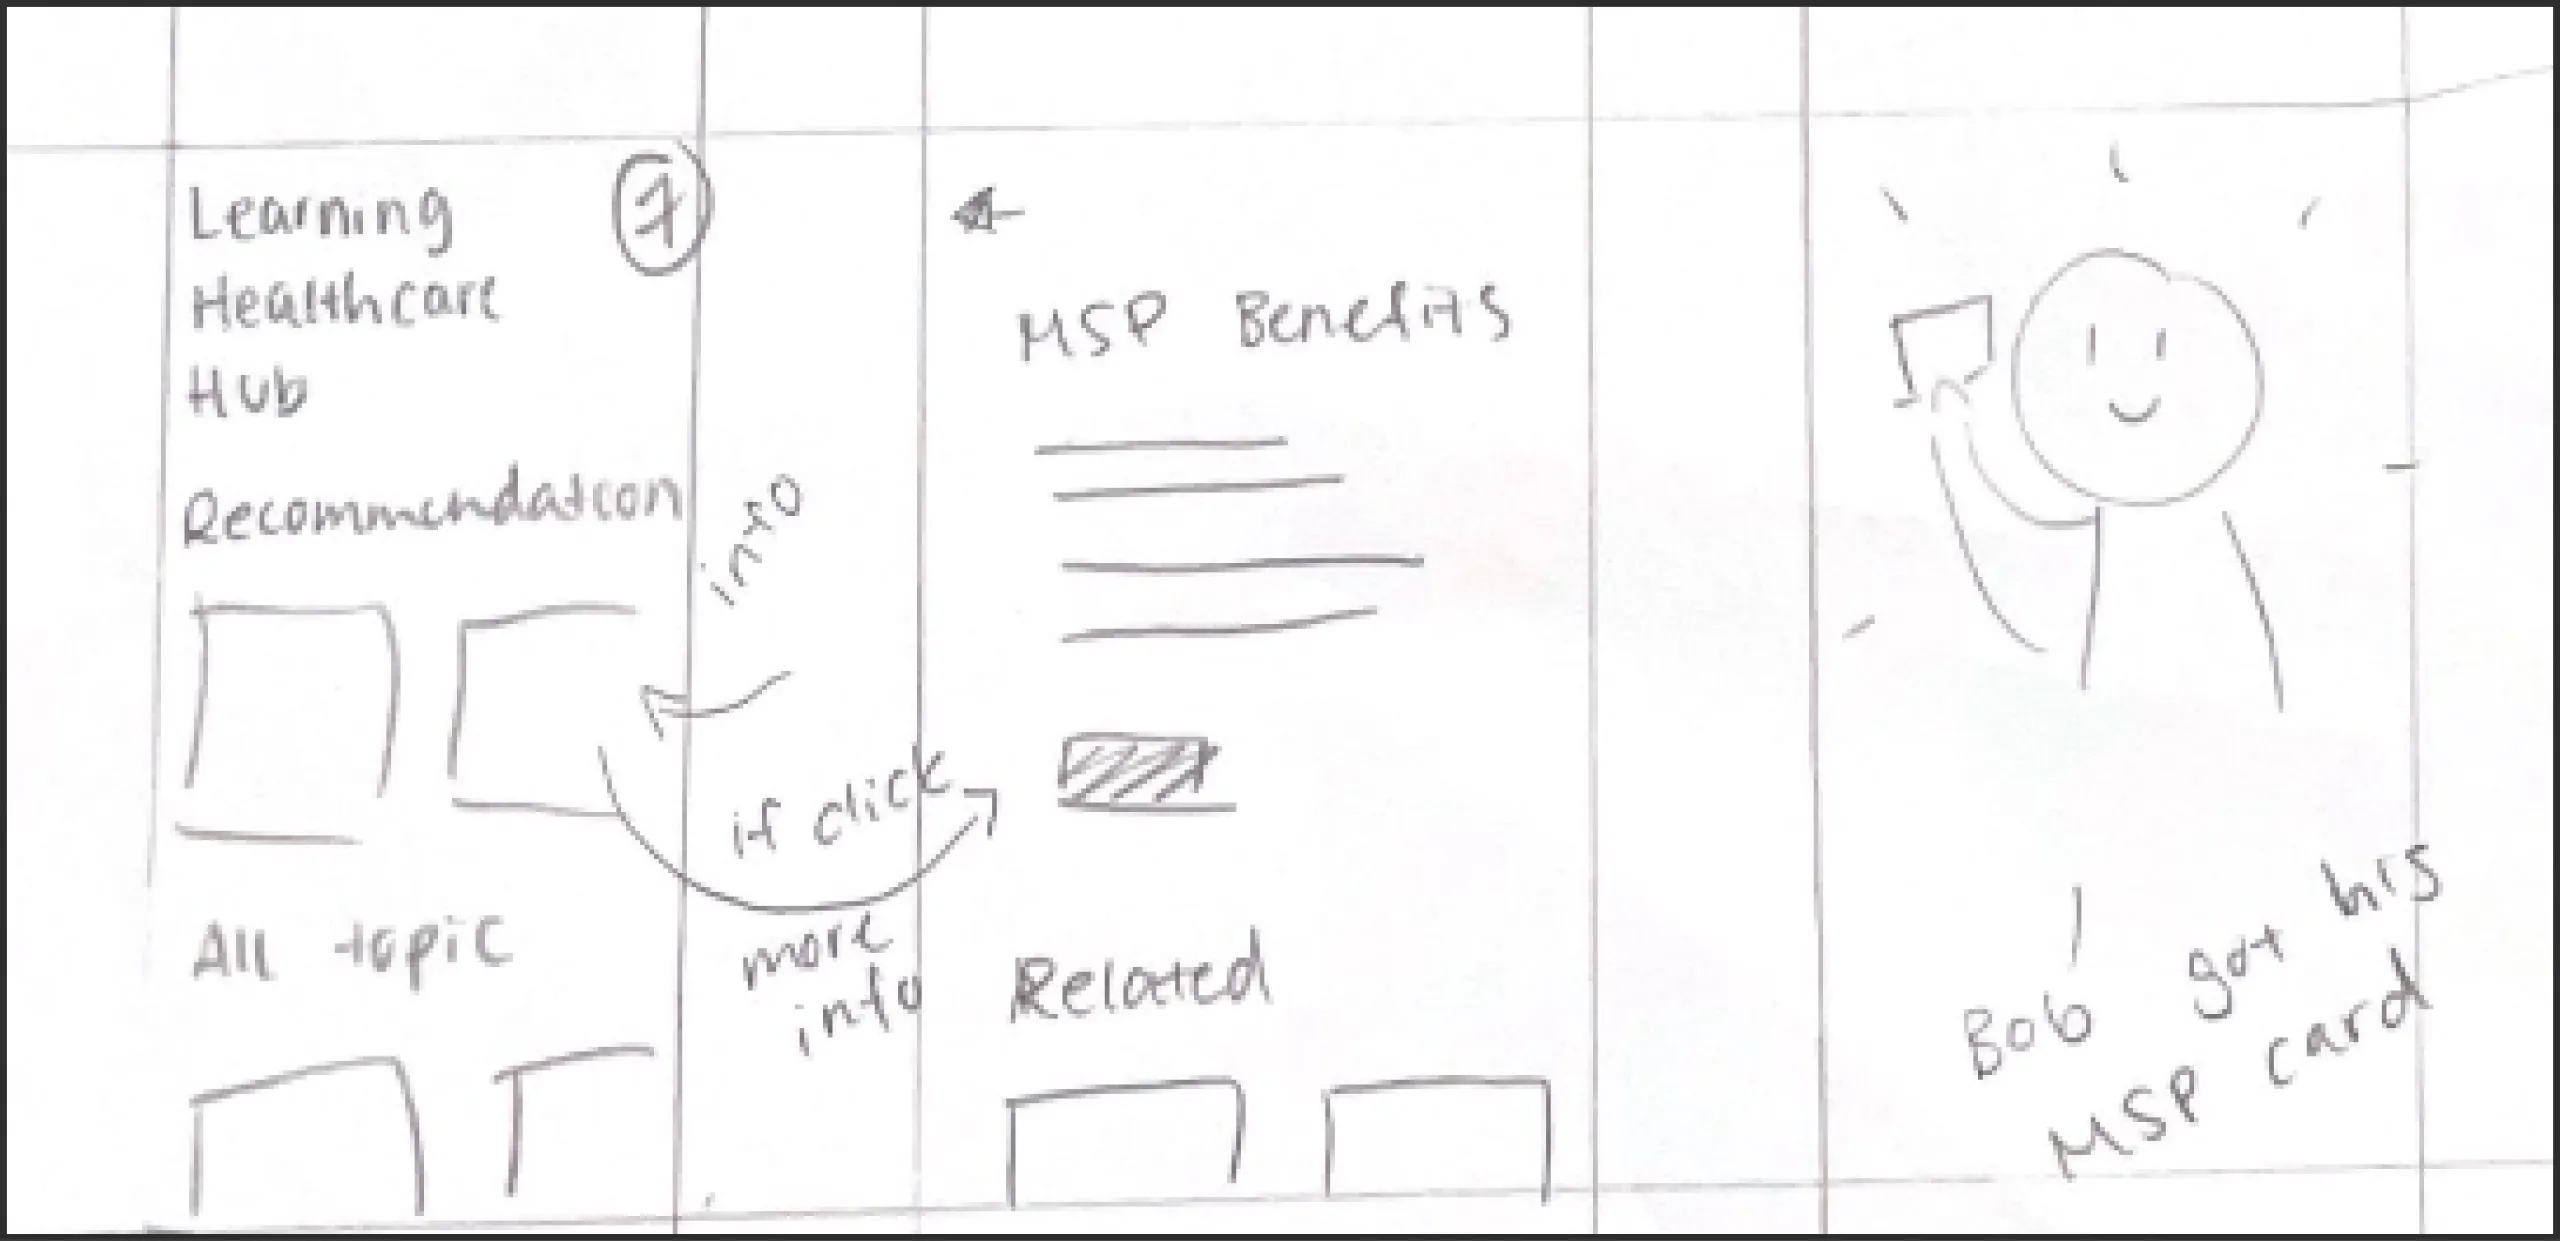 7
Learning
Healthcare
Hub
Recommendation
info
if click
more
info
All topic
MSP Benefits
Related
Bob got his
MSP card